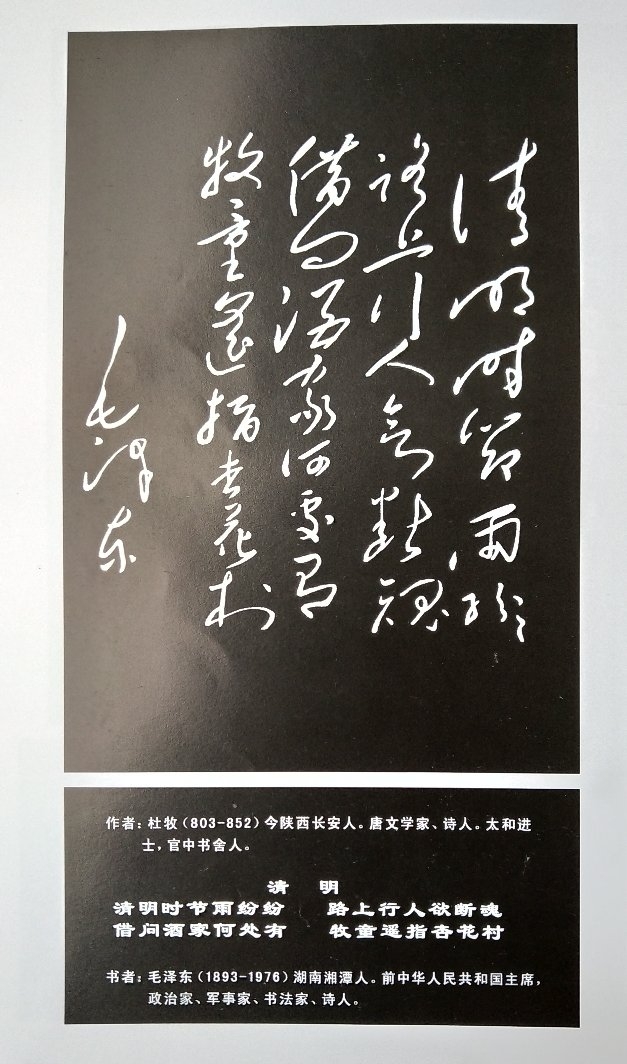 清明时节雨纷纷
路上行人欲断魂
借问酒家何处有
牧童遥指杏花村
毛泽东
作者：杜牧（803-852）今陕西长安人。唐文学家、诗人。太和进
士，官中书舍人。
清 明
清明时节雨纷纷 路上行人欲断魂
借问酒家何处有 牧童遥指杏花村
书者：毛泽东（1893-1976）湖南湘潭人。前中华人民共和国主席，
政治家、军事家、书法家、诗人。